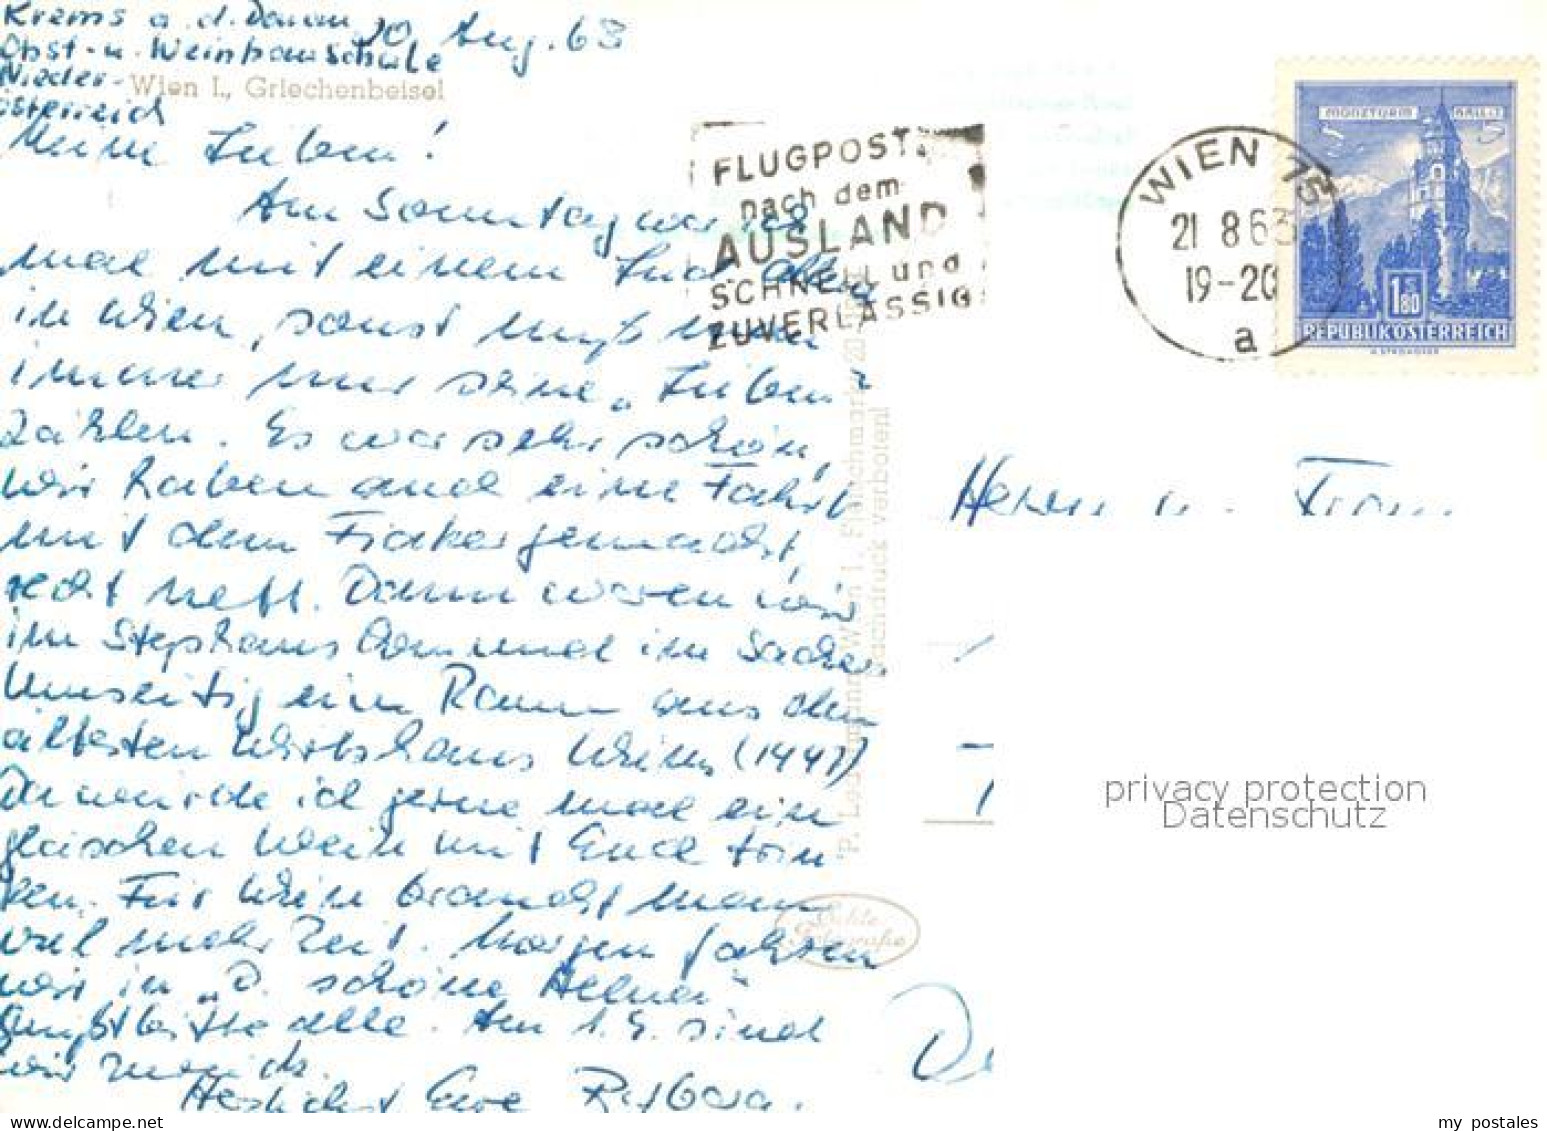 Krems a. d. Donau 20 Aug. 63
Obst- u. Weinbauschule
Nieder-
österreich
Wien I., Griechenbeisel
Meine Lieben!
Am Sonntag war ich
mal mit einem
in Wien, sonst muß man
immer nur seine „Lieben"
zählen. Es war sehr schön,
wir haben auch eine Fahrt
mit dem Fiaker gemacht,
recht nett. Dann waren wir
im Stephans Dom und im Sacher.
Umseitig ein Raum aus dem
ältesten Wirtshaus Wiens (1447)
Da würde ich gerne mal ein
gläschen Wein mit Euch trin-
ken. Für Wien braucht man
viel mehr Zeit. Morgen fahren
wir in „D. schöne Helena"
Grüßt bitte alle. Am 1.9. sind
wir zurück.
Herzlichst Eure Barbara.
FLUGPOST
nach dem
AUSLAND
SCHNELL und
ZUVERLÄSSIG
WIEN 75
21 8 63
19-20
a
MÜNZTURM HALL i. T.
S 1.80
REPUBLIK ÖSTERREICH
Wien 1, Fleischmarkt 20
Nachdruck verboten!
Echte
Fotografie
Herrn u. Frau
privacy protection
Datenschutz
my postales